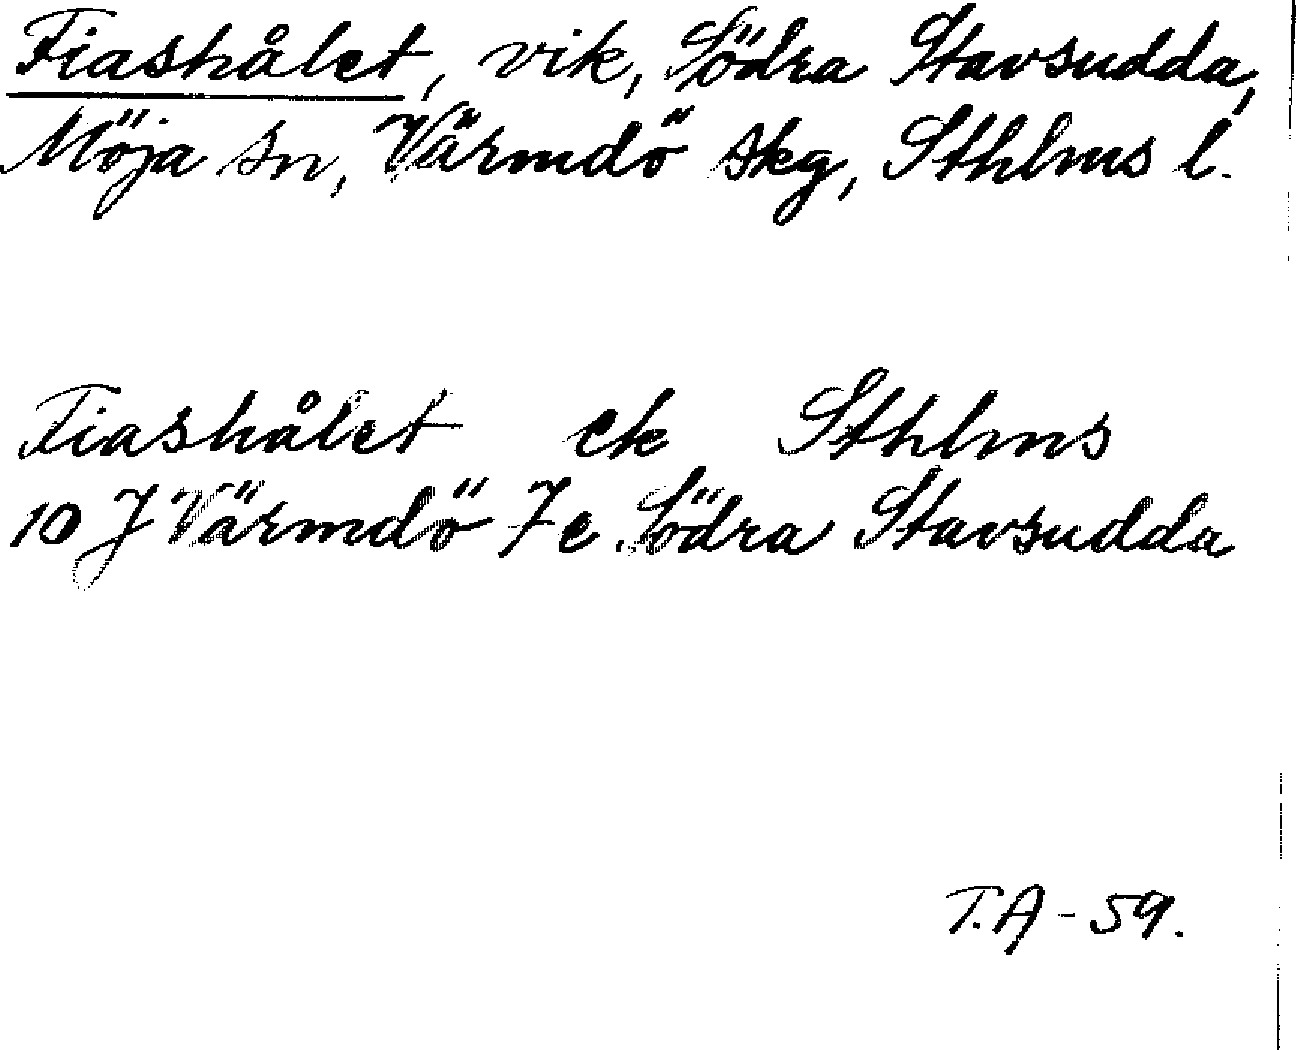 Fiashålet, vik, Södra Stavsudda,
Möja sn, Värmdö skg, Sthlms l.
Fiashålet ek Sthlms
10 J Värmdö 7e Södra Stavsudda
T.A - 59.